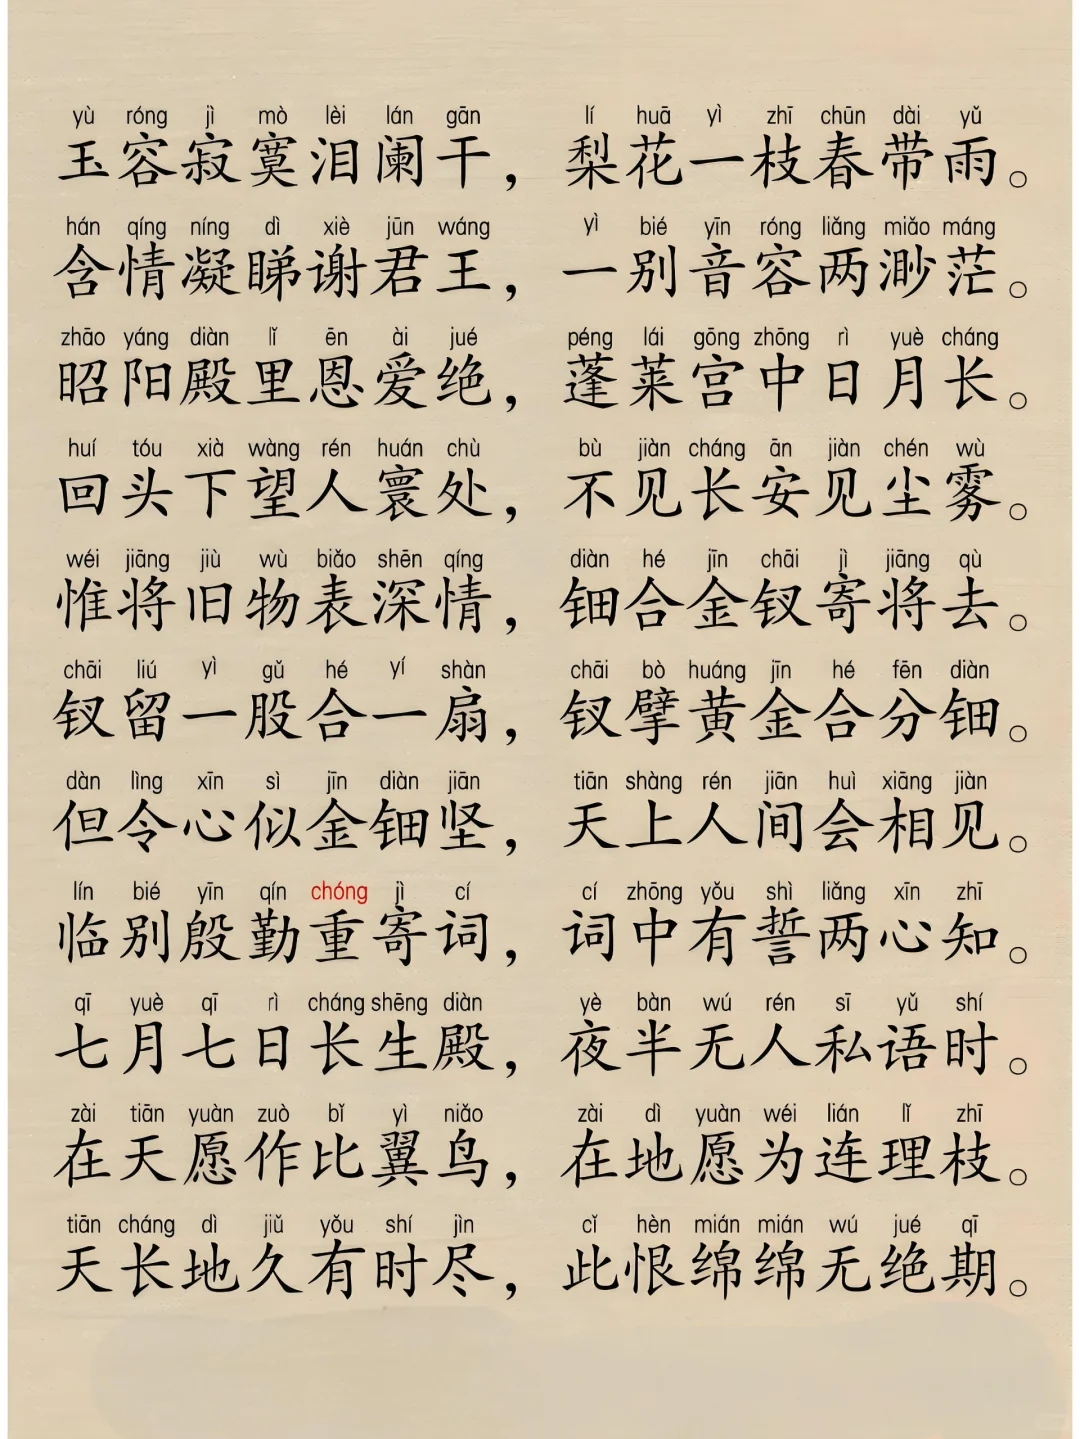 yù róng jì mò lèi lán gān lí huā yì zhī chūn dài yǔ
玉容寂寞泪阑干，梨花一枝春带雨。
hán qíng níng dì xiè jūn wáng yì bié yīn róng liǎng miǎo máng
含情凝睇谢君王，一别音容两渺茫。
zhāo yáng diàn lǐ ēn ài jué péng lái gōng zhōng rì yuè cháng
昭阳殿里恩爱绝，蓬莱宫中日月长。
huí tóu xià wàng rén huán chù bù jiàn cháng ān jiàn chén wù
回头下望人寰处，不见长安见尘雾。
wéi jiāng jiù wù biǎo shēn qíng diàn hé jīn chāi jì jiāng qù
惟将旧物表深情，钿合金钗寄将去。
chāi liú yì gǔ hé yí shàn chāi bò huáng jīn hé fēn diàn
钗留一股合一扇，钗擘黄金合分钿。
dàn lìng xīn sì jīn diàn jiān tiān shàng rén jiān huì xiāng jiàn
但令心似金钿坚，天上人间会相见。
lín bié yīn qín chóng jì cí cí zhōng yǒu shì liǎng xīn zhī
临别殷勤重寄词，词中有誓两心知。
qī yuè qī rì cháng shēng diàn yè bàn wú rén sī yǔ shí
七月七日长生殿，夜半无人私语时。
zài tiān yuàn zuò bǐ yì niǎo zài dì yuàn wéi lián lǐ zhī
在天愿作比翼鸟，在地愿为连理枝。
tiān cháng dì jiǔ yǒu shí jìn cǐ hèn mián mián wú jué qī
天长地久有时尽，此恨绵绵无绝期。